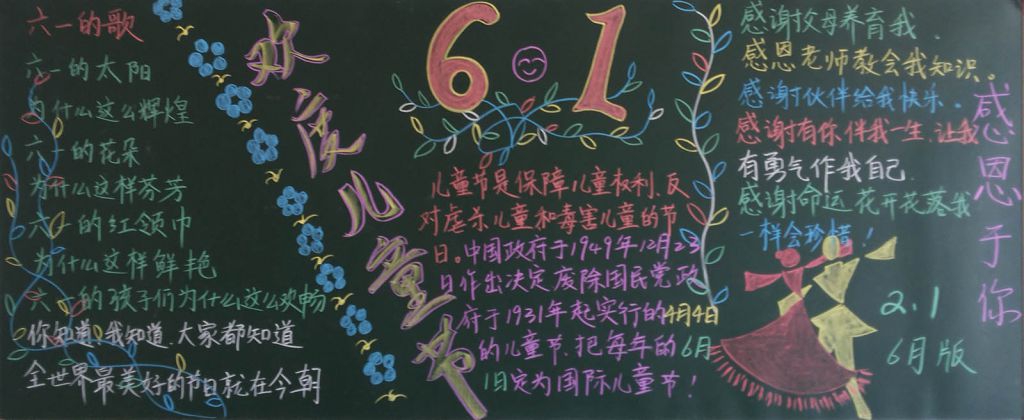 六一的歌
六一的太阳
为什么这么辉煌
六一的花朵
为什么这样芬芳
六一的红领巾
为什么这样鲜艳
六一的孩子们为什么这么欢畅
你知道、我知道、大家都知道
全世界最美好的节日就在今朝
欢度儿童节
6·1
儿童节是保障儿童权利、反
对虐杀儿童和毒害儿童的节
日。中国政府于1949年12月23
日作出决定废除国民党政
府于1931年起实行的4月4日
的儿童节、把每年的6月
1日定为国际儿童节！
感谢父母养育我、
感恩老师教会我知识。
感谢伙伴给我快乐、
感谢有你、伴我一生、让我
有勇气作我自己
感谢命运花开花落我
一样会珍惜！
感恩于你
2.1
6月版